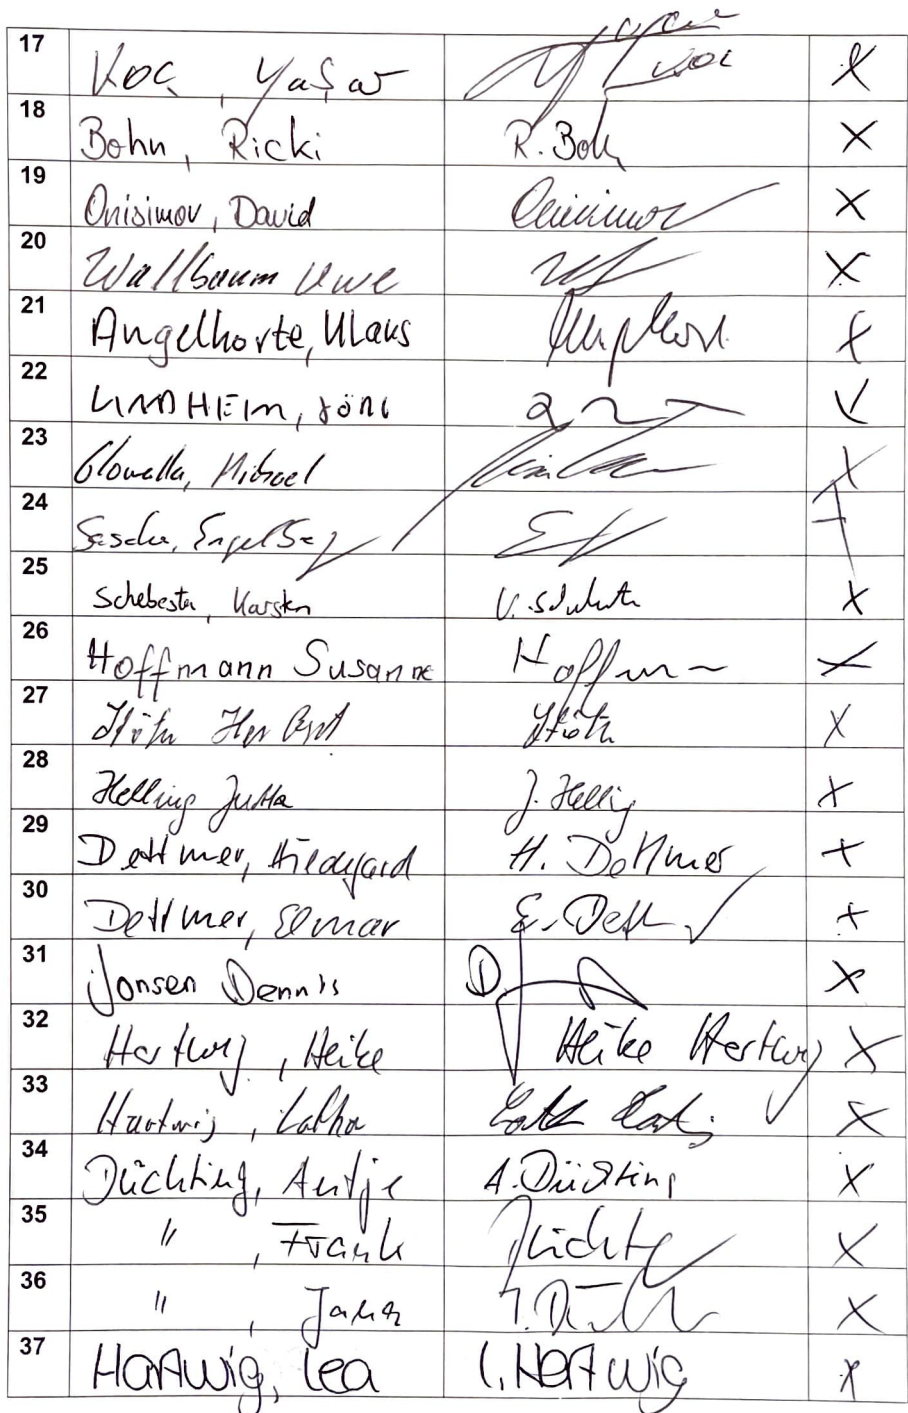 17 Koç, Yaşar Yaşar Koc X
18 Bohn, Ricki R. Bohn X
19 Onisimov, David Onisimov X
20 Wallbaum Uwe X
21 Angelkorte, Klaus Angelkort X
22 LINDHEIM, JÖRG X
23 Glowalla, Michael X
24 Sascha, Engelberg X
25 Schebesta, Karsten K. Schebesta X
26 Hoffmann Susanne Hoffmann X
27 Herbert X
28 Helling Jutta J. Helling X
29 Dettmer, Hildegard H. Dettmer X
30 Dettmer, Elmar E. Dett X
31 Jonsen Dennis D. X
32 Hartwig, Heike Heike Hartwig X
33 Hartwig, Lothar X
34 Düchting, Antje A. Düchting X
35 ", Frank Düchting X
36 ", Jana J. X
37 Hartwig, Lea L. Hartwig X